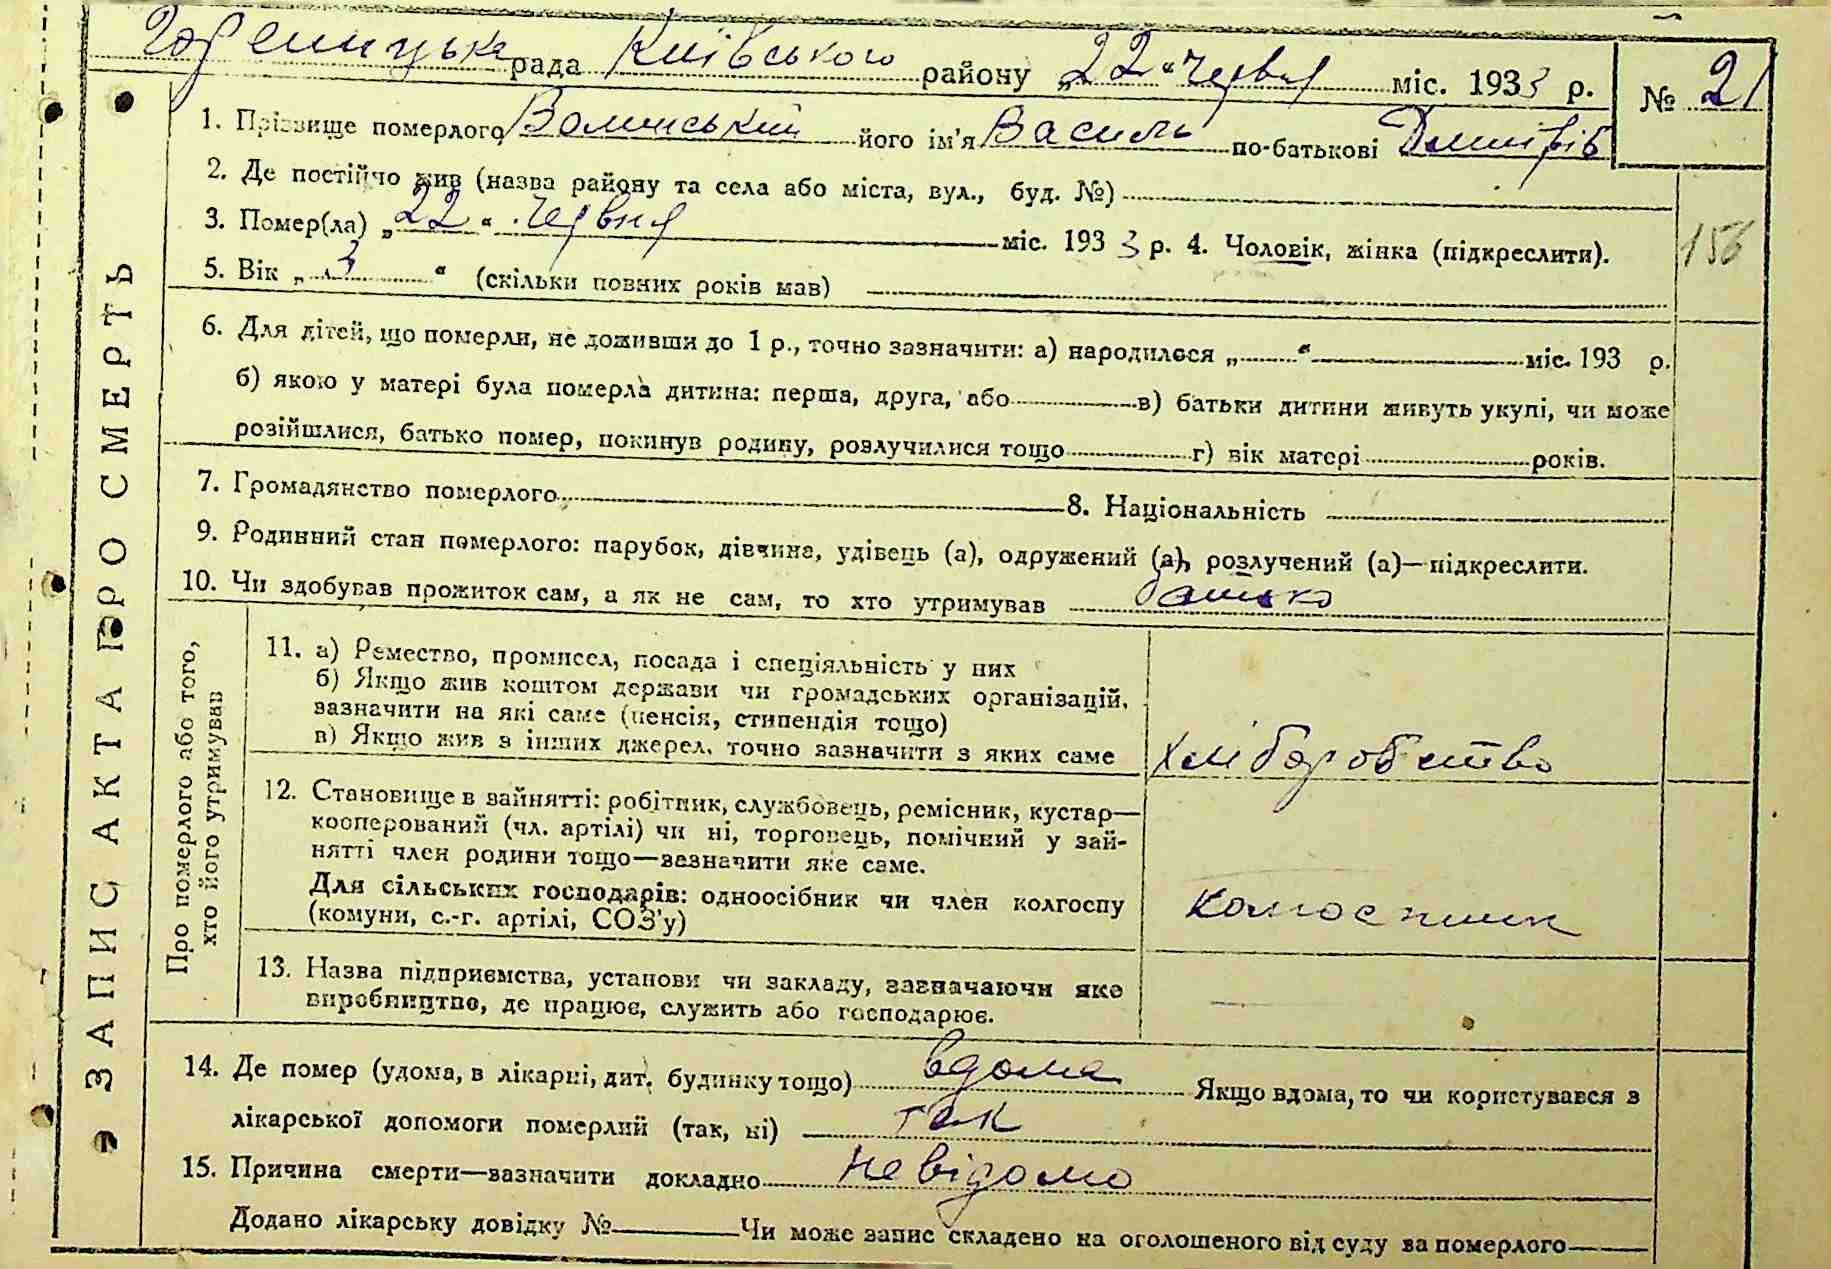 Гореницька рада Київського району „22“ червня міс. 1933 р. № 21
1. Прізвище померлого Волинський його ім'я Василь по-батькові Дмитрів
2. Де постійчо жив (назва району та села або міста, вул., буд. №)
3. Помер(ла) „22“ червня міс. 1933 р. 4. Чоловік, жінка (підкреслити).
156
5. Вік „3“ (скільки повних років мав)
6. Для дітей, що померли, не доживши до 1 р., точно зазначити: а) народилося „ “ міс. 193 р.
б) якою у матері була померла дитина: перша, друга, або в) батьки дитини живуть укупі, чи може
розійшлися, батько помер, покинув родину, розлучилися тощо г) вік матері років.
7. Громадянство померлого 8. Національність
9. Родинний стан померлого: парубок, дівчина, удівець (а), одружений (а), розлучений (а)—підкреслити.
10. Чи здобував прожиток сам, а як не сам, то хто утримував батько
ЗАПИС АКТА ПРО СМЕРТЬ
Про померлого або того,
хто його утримував
11. а) Ремество, промисел, посада і спеціяльність у них
б) Якщо жив коштом держави чи громадських організацій,
зазначити на які саме (пенсія, стипендія тощо)
в) Якщо жив з інших джерел, точно зазначити з яких саме
хліборобство
12. Становище в зайнятті: робітник, службовець, ремісник, кустар—
кооперований (чл. артілі) чи ні, торговець, помічний у зай-
нятті член родини тощо—зазначити яке саме.
Для сільських господарів: одноосібник чи член колгоспу
(комуни, с.-г. артілі, СОЗ'у)
колгоспник
13. Назва підприємства, установи чи закладу, зазначаючи яке
виробництво, де працює, служить або господарює.
14. Де помер (удома, в лікарні, дит. будинку тощо) вдома Якщо вдома, то чи користувався з
лікарської допомоги померлий (так, ні) так
15. Причина смерти—зазначити докладно невідомо
Додано лікарську довідку № Чи може запис складено на оголошеного від суду за померлого